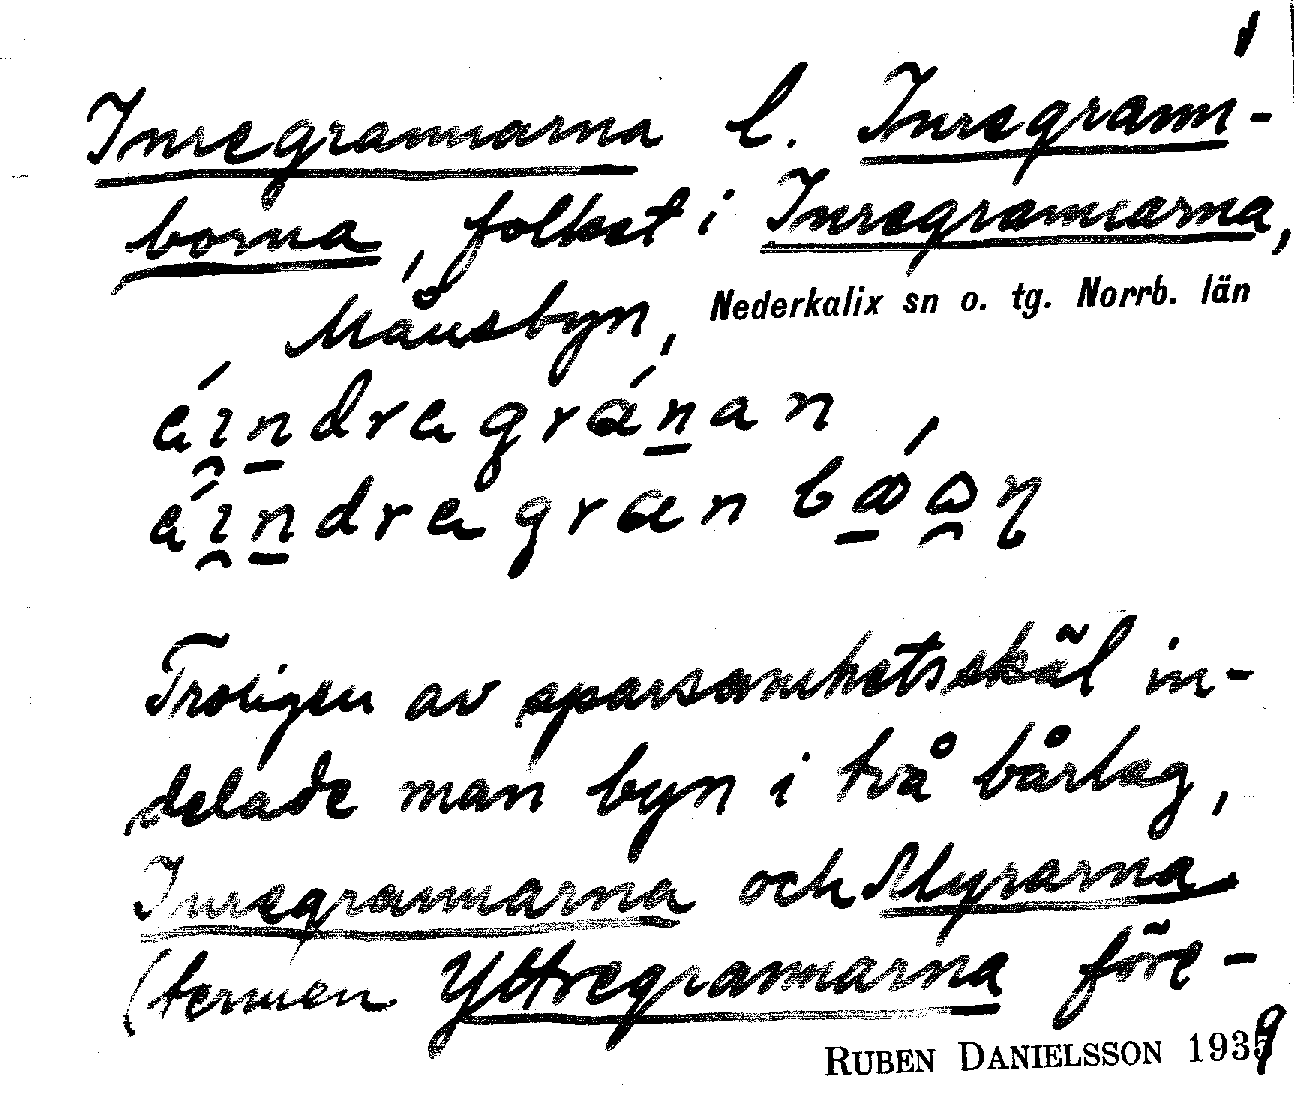 Inregrannarna l. Inregrann-
borna, folket i Inregrannarna,
Månsbyn, Nederkalix sn o. tg. Norrb. län
Troligen av sparsamhetsskäl in-
delade man byn i två bårlag,
Inregrannarna och Myrarna
(termen Yttregrannarna före-
RUBEN DANIELSSON 1939